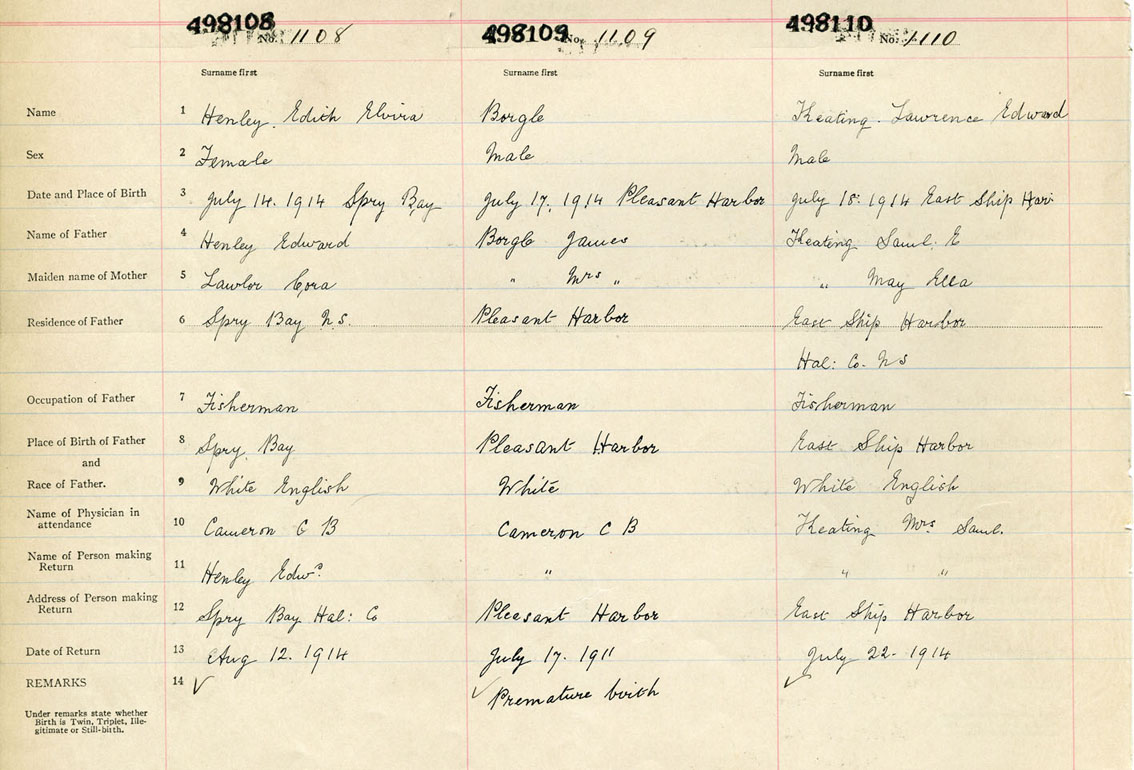 498108 No. 1108 498109 No. 1109 498110 No. 1110
Surname first Surname first Surname first
Name 1 Henley Edith Elvira Borgle Keating. Lawrence Edward
Sex 2 Female Male Male
Date and Place of Birth 3 July 14. 1914 Spry Bay July 17. 1914 Pleasant Harbor July 18. 1914 East Ship Har
Name of Father 4 Henley Edward Borgle James Keating Saml. E
Maiden name of Mother 5 Lawlor Cora " Mrs " " May Ella
Residence of Father 6 Spry Bay N.S. Pleasant Harbor East Ship Harbor
Hal: Co. NS
Occupation of Father 7 Fisherman Fisherman Fisherman
Place of Birth of Father 8 Spry Bay Pleasant Harbor East Ship Harbor
and
Race of Father. 9 White English White White English
Name of Physician in
attendance 10 Cameron C B Cameron C B Keating Mrs Saml.
Name of Person making
Return 11 Henley Edwd. " " "
Address of Person making
Return 12 Spry Bay Hal: Co Pleasant Harbor East Ship Harbor
Date of Return 13 Aug 12. 1914 July 17. 1911 July 22. 1914
REMARKS 14 ✓ ✓ Premature birth ✓
Under remarks state whether
Birth is Twin, Triplet, Ille-
gitimate or Still-birth.